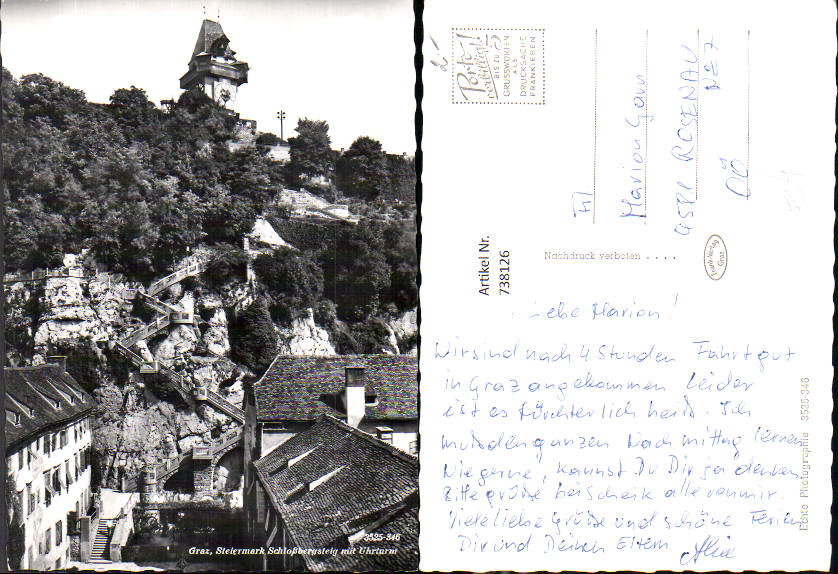 3525-346
Graz, Steiermark Schloßbergsteig mit Uhrturm
Porto-
verbilligt!
BIS ZU 5
GRUSSWORTEN
ALS
DRUCKSACHE
FRANKIEREN
Frl
Marion
4581 ROSENAU
OÖ
Artikel Nr.
738126
Nachdruck verboten . . . .
Frank-Verlag
Graz
Liebe Marion!
Wir sind nach 4 Stunden Fahrt gut
in Graz angekommen. Leider
ist es fürchterlich heiß. Ich
muß den ganzen Nachmittag lernen
Wie gerne, kannst Du Dir ja denken.
Bitte grüße alle von mir.
Viele liebe Grüße und schöne Ferien
Dir und Deinen Eltern
Echte Photographie 3525-346